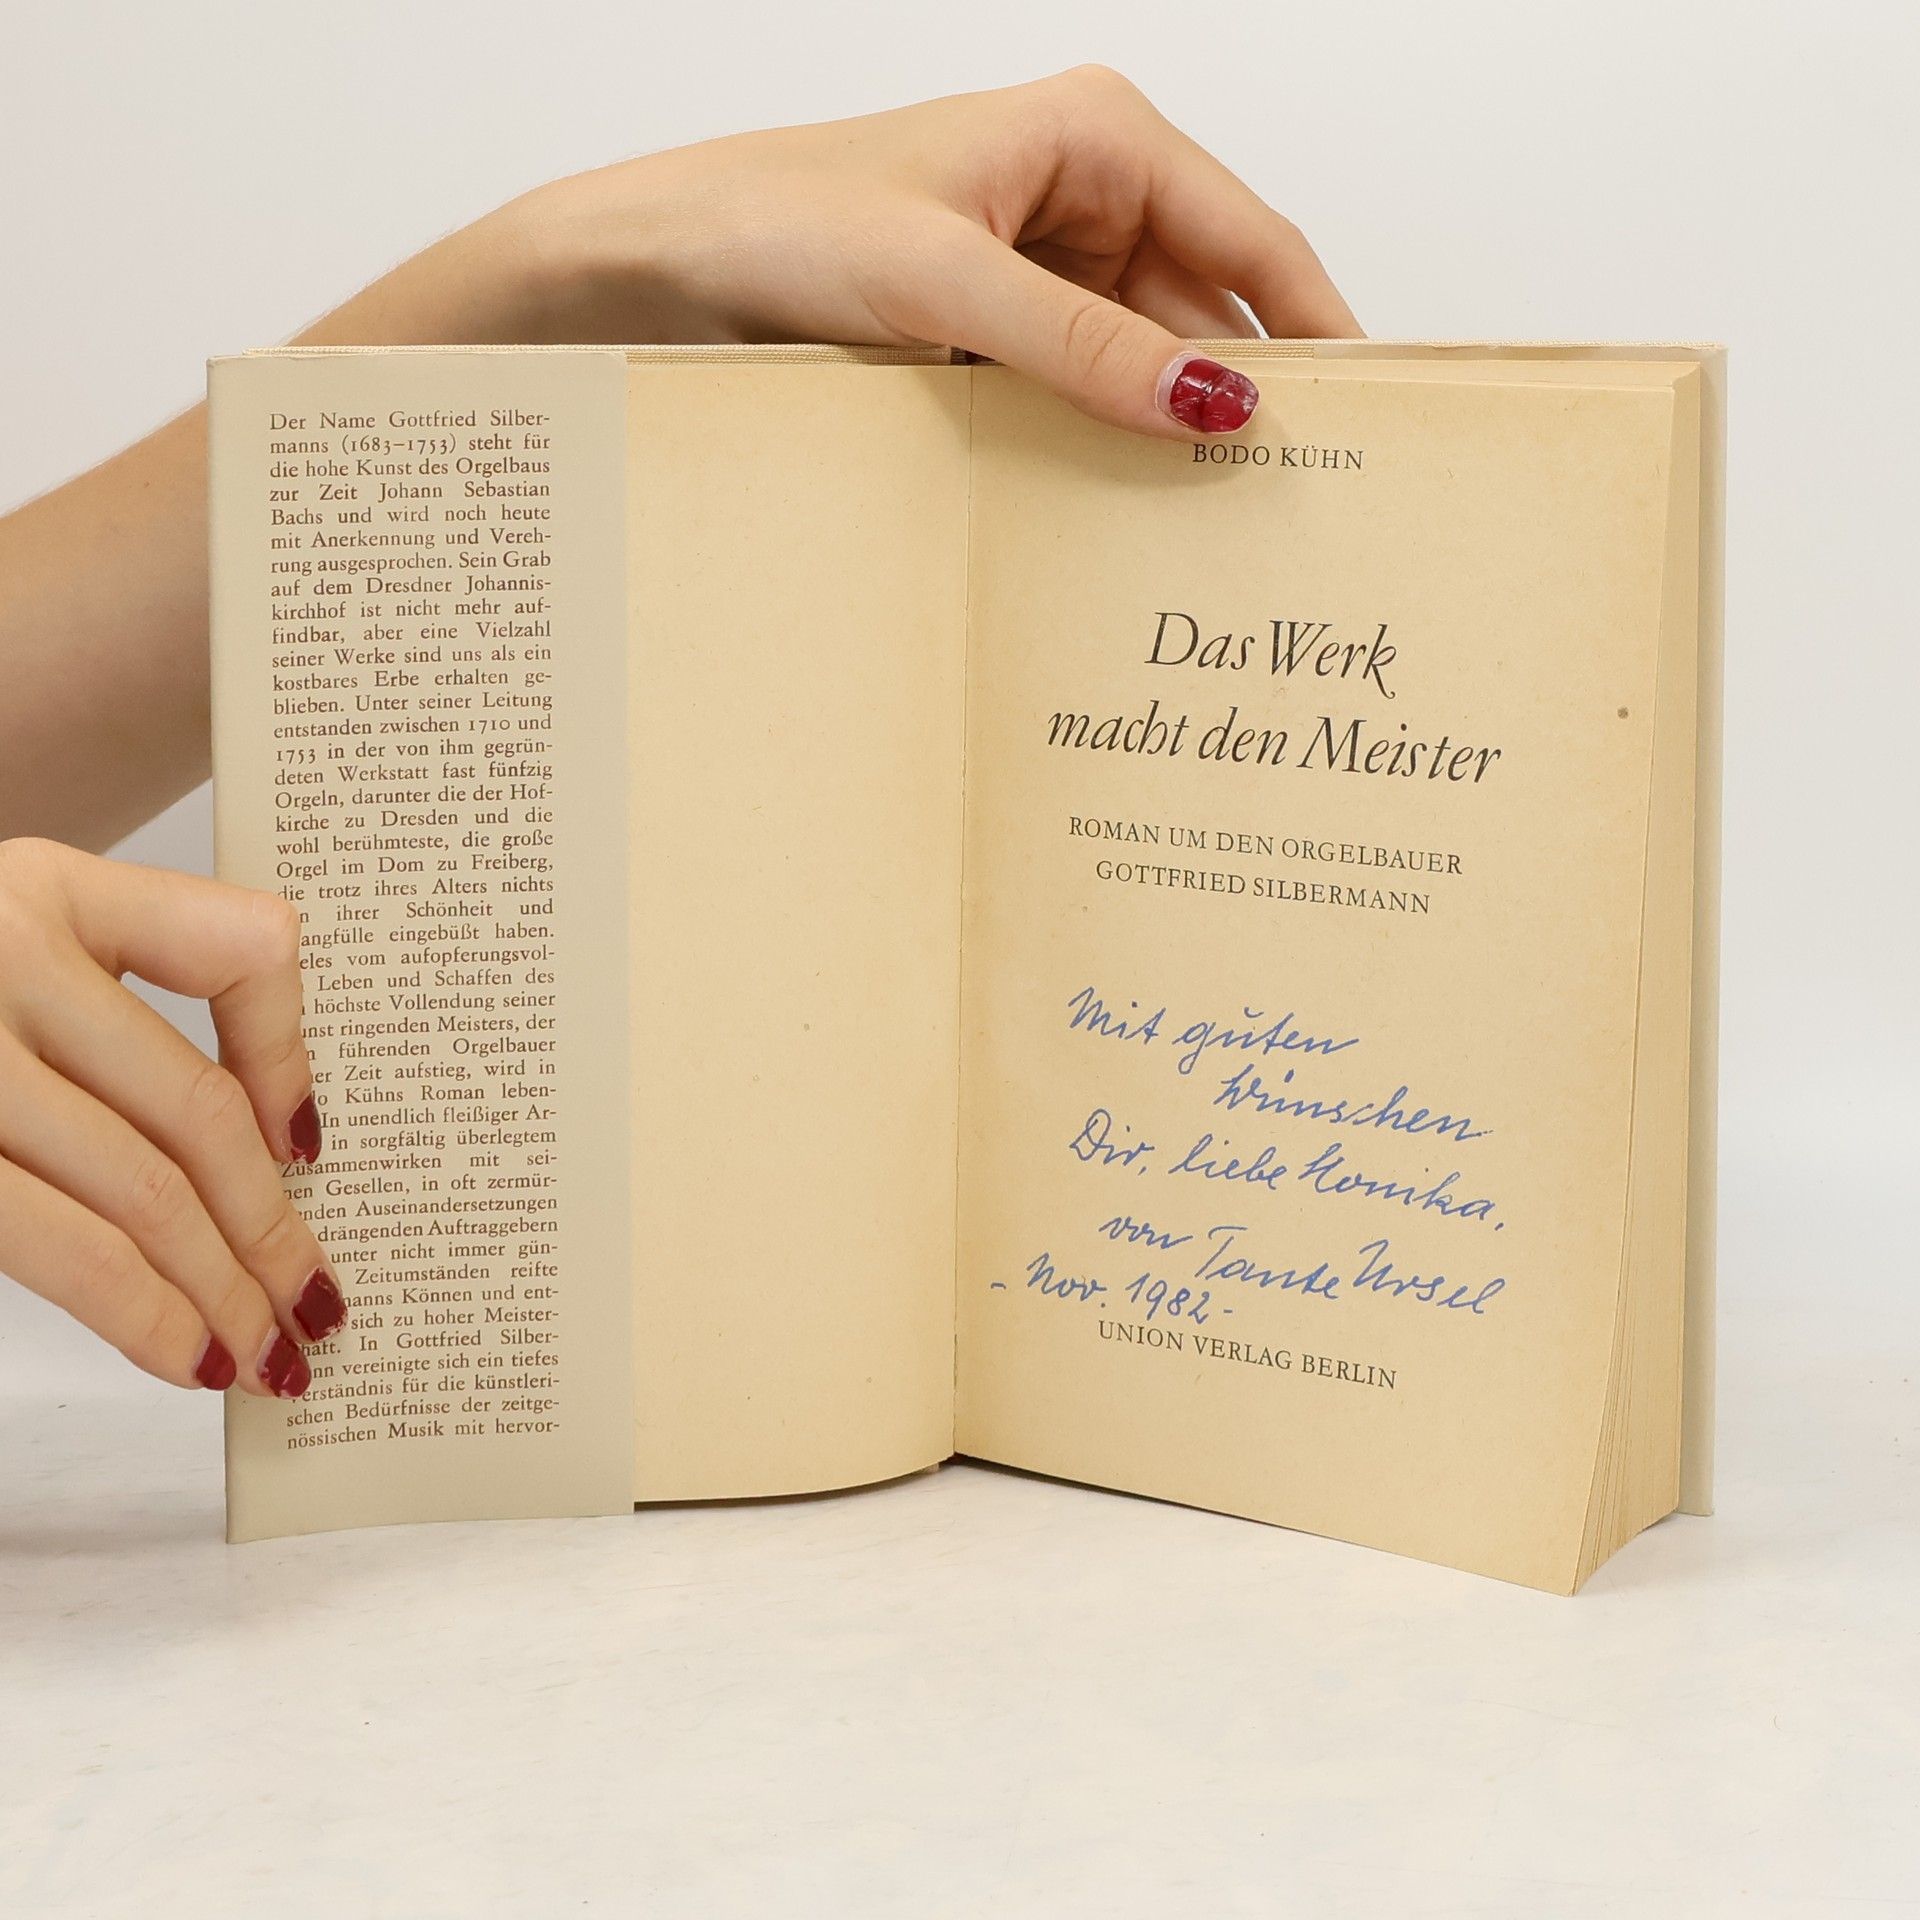 Der Name Gottfried Silber-
manns (1683–1753) steht für
die hohe Kunst des Orgelbaus
zur Zeit Johann Sebastian
Bachs und wird noch heute
mit Anerkennung und Vereh-
rung ausgesprochen. Sein Grab
auf dem Dresdner Johannis-
kirchhof ist nicht mehr auf-
findbar, aber eine Vielzahl
seiner Werke sind uns als ein
kostbares Erbe erhalten ge-
blieben. Unter seiner Leitung
entstanden zwischen 1710 und
1753 in der von ihm gegrün-
deten Werkstatt fast fünfzig
Orgeln, darunter die der Hof-
kirche zu Dresden und die
wohl berühmteste, die große
Orgel im Dom zu Freiberg,
die trotz ihres Alters nichts
ihrer Schönheit und
angfülle eingebüßt haben.
eles vom aufopferungsvol-
Leben und Schaffen des
höchste Vollendung seiner
unst ringenden Meisters, der
führenden Orgelbauer
er Zeit aufstieg, wird in
o Kühns Roman leben-
In unendlich fleißiger Ar-
in sorgfältig überlegtem
Zusammenwirken mit sei-
nen Gesellen, in oft zermür-
enden Auseinandersetzungen
drängenden Auftraggebern
unter nicht immer gün-
Zeitumständen reifte
manns Können und ent-
sich zu hoher Meister-
haft. In Gottfried Silber-
nn vereinigte sich ein tiefes
Verständnis für die künstleri-
schen Bedürfnisse der zeitge-
nössischen Musik mit hervor-
BODO KÜHN
Das Werk
macht den Meister
ROMAN UM DEN ORGELBAUER
GOTTFRIED SILBERMANN
Mit guten
Wünschen
Dir, liebe Monika,
von Tante Ursel
- Nov. 1982 -
UNION VERLAG BERLIN